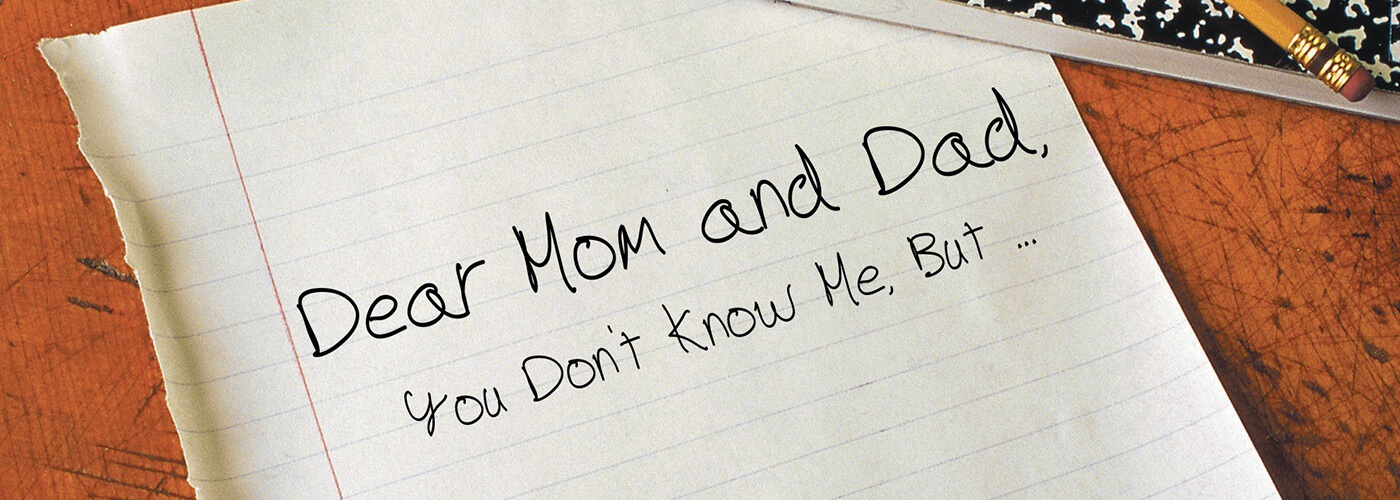 Dear Mom and Dad,
You Don't Know Me, But ...